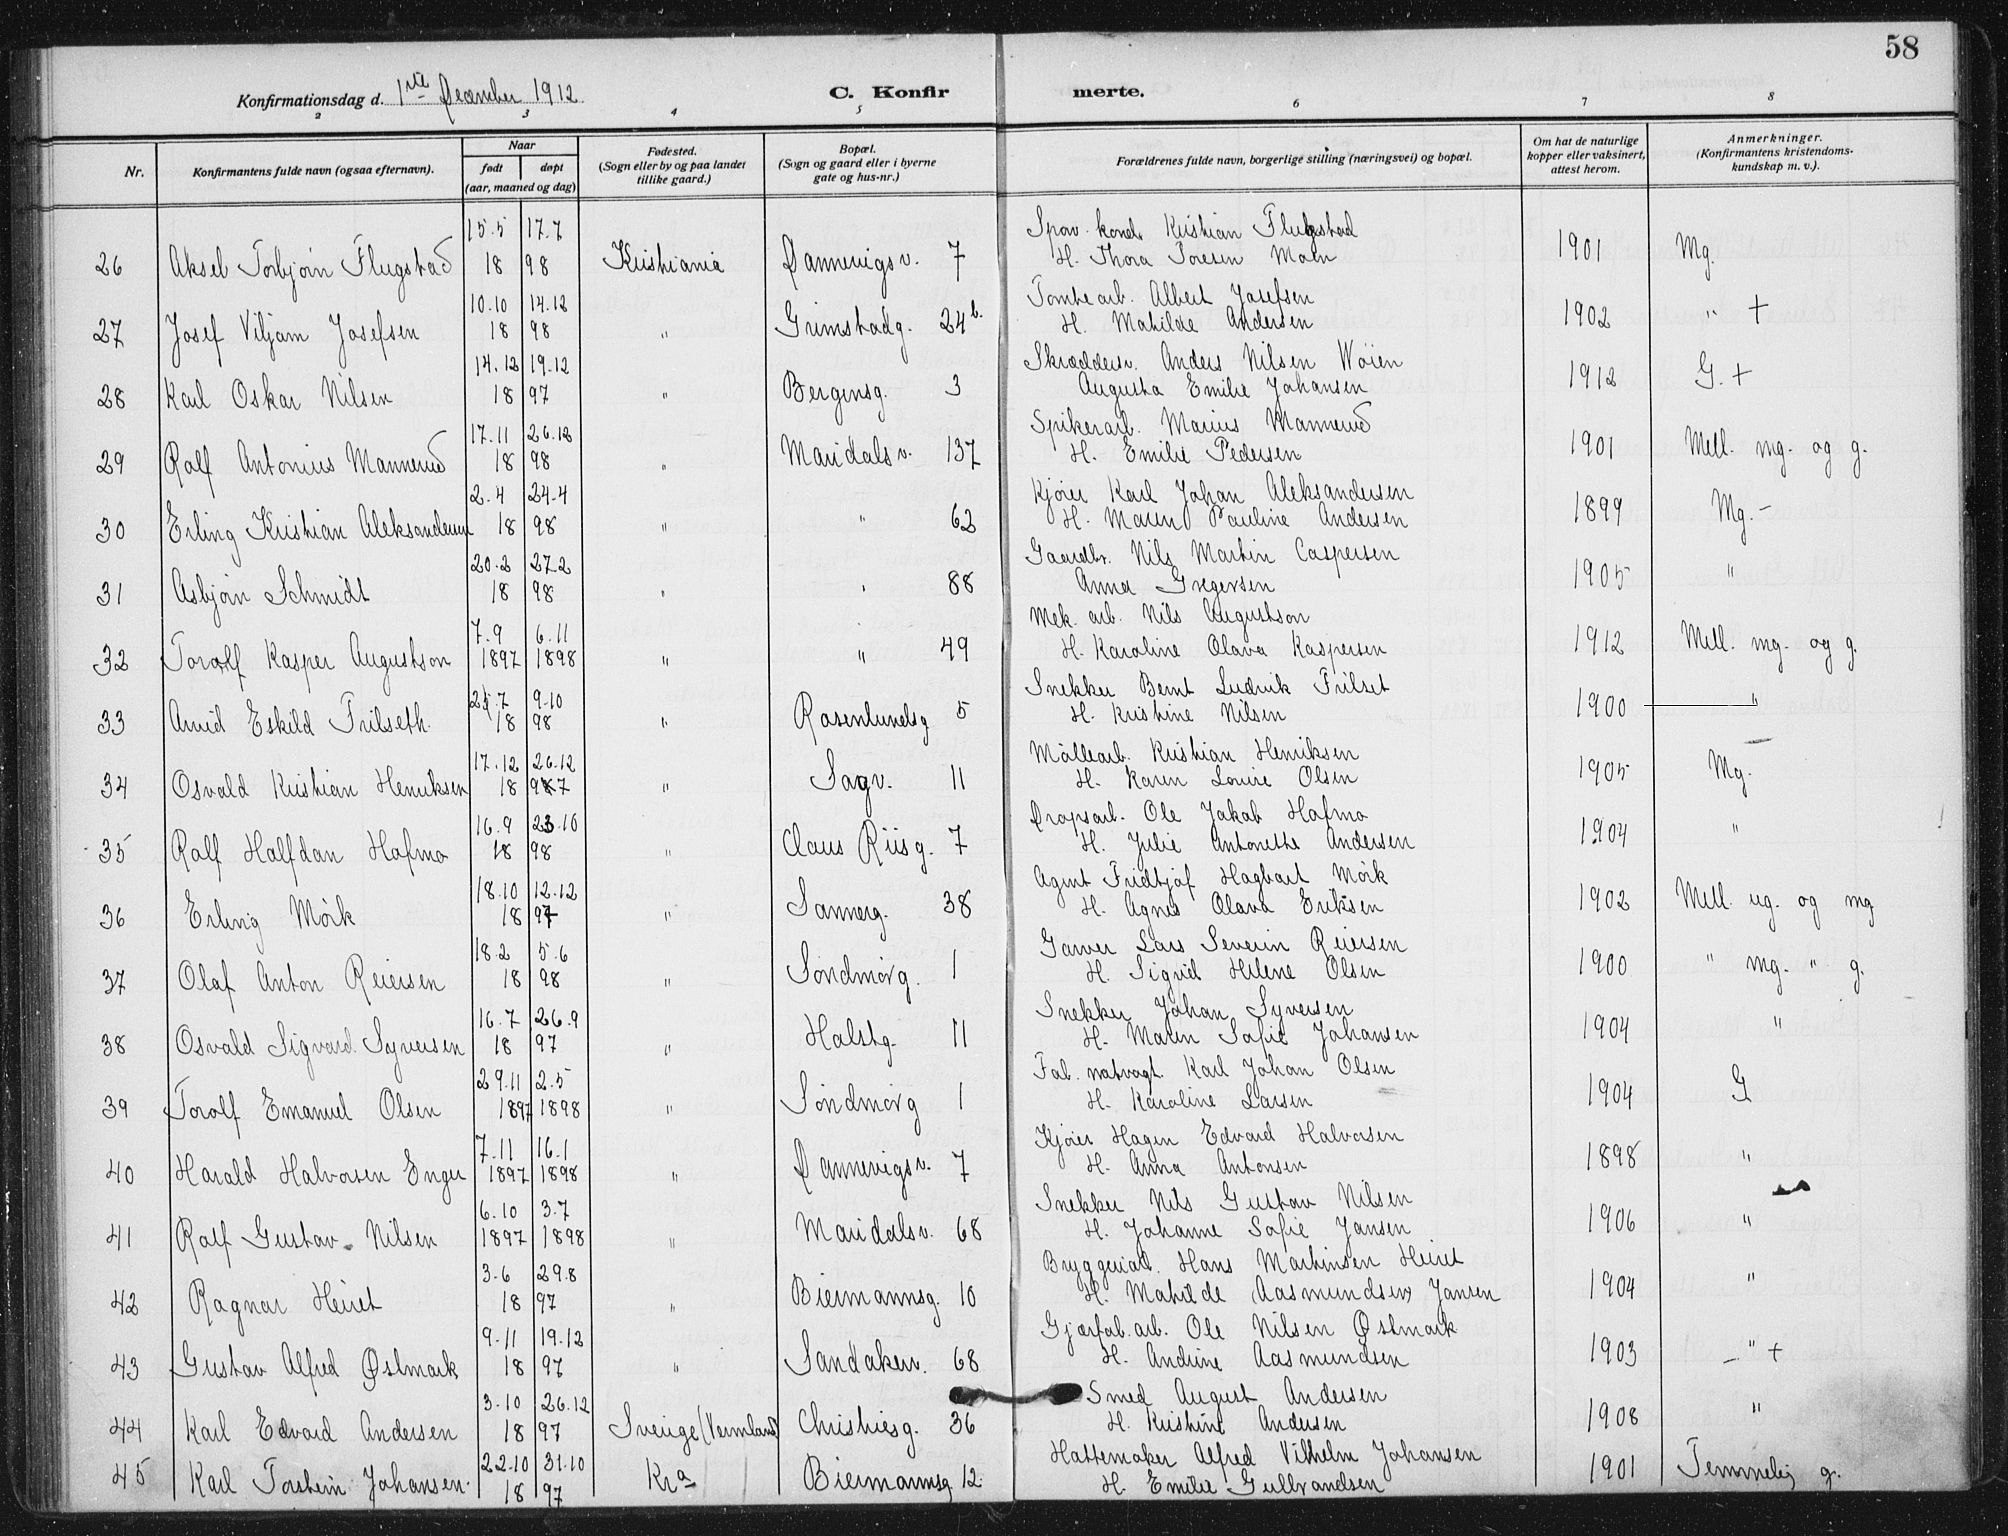 58
Konfirmationsdag d. 1ste December 1912. C. Konfirmerte.
2 3 4 5 6 7 8
Nr. Konfirmantens fulde navn (ogsaa efternavn). Naar født døpt (aar, maaned og dag) Fødested. (Sogn eller by og paa landet tillike gaard.) Bopæl. (Sogn og gaard eller i byerne gate og hus-nr.) Forældrenes fulde navn, borgerlige stilling (næringsvei) og bopæl. Om hat de naturlige kopper eller vaksinert, attest herom. Anmerkninger. (Konfirmantens kristendoms-kundskap m. v.).
15.5 17.7 Sporv. kond. Kristian Flugstad
26 Aksel Torbjørn Flugstad 18 98 Kristiania Dannevigsv. 7 H. Thora Toresen Moen 1901 Mg.
10.10 14.12 Tomtearb. Albert Josefsen
27 Josef Viljam Josefsen 18 98 " Grimstadg. 24b. H. Mathilde Andersen 1902 " +
14.12 19.12 Skræddersv. Anders Nilsen Woien
28 Karl Oskar Nilsen 18 97 " Bergensg. 3 Augusta Emilie Johansen 1912 G. +
17.11 26.12 Spikerarb. Marius Mannerud
29 Rolf Antonius Mannerud 18 98 " Maridalsv. 137 H. Emilie Pedersen 1901 Mell. mg. og g.
2.4 24.4 Kjører Karl Johan Aleksandersen
30 Erling Kristian Aleksandersen 18 98 " " 62 H. Maren Pauline Andersen 1899 Mg. -
20.2 27.2 Gaardbr. Nils Martin Caspersen
31 Asbjørn Schmidt 18 98 " " 88 Anna Gregersen 1905 "
7.9 6.11 Mek. arb. Nils Augustson
32 Torolf Kasper Augustson 1897 1898 " " 49 H. Karoline Olava Kaspersen 1912 Mell. mg. og g.
25.7 9.10 Snekker Bernt Ludvik Frilset
33 Arvid Eskild Frilseth. 18 98 " Rosenlundsg 5 H. Kristine Nilsen 1900 "
17.12 26.12 Møllearb. Kristian Henriksen
34 Osvald Kristian Henriksen 18 97 " Sagv. 11 H. Karen Louise Olsen 1905 Mg.
16.9 23.10 Dropsarb. Ole Jakob Hofmo
35 Rolf Halfdan Hofmo 18 98 " Claus Riisg. 7 H. Julie Antonette Andersen 1904 "
18.10 12.12 Agent Fridtjof Hagbart Mørk
36 Erling Mørk 18 97 " Sannerg. 38 H. Agnes Olava Eriksen 1902 Mell. ug. og mg
18.2 5.6 Garver Lars Severin Reiersen
37 Olaf Anton Reiersen 18 98 " Søndmørg. 1 H. Sigrid Helene Olsen 1900 " mg. " g.
16.7 26.9 Snekker Johan Syversen
38 Osvald Sigvard Syversen 18 97 " Holstg. 11 H. Maren Sofie Johansen 1904 "
29.11 2.5 Fab. natvagt. Karl Johan Olsen
39 Torolf Emanuel Olsen 1897 1898 " Søndmørg 1 H. Karoline Larsen 1904 G
7.11 16.1 Kjører Hagen Edvard Halvorsen
40 Harald Halvorsen Enger 1897 1898 " Dannevigsv. 7 H. Anna Antonsen 1898 "
6.10 3.7 Snekker Nils Gustav Nilsen
41 Rolf Gustav Nilsen 1897 1898 " Maridalsv. 68 H. Johanne Sofie Jansen 1906 "
3.6 29.8 Bryggeriarb. Hans Martinsen Heiret
42 Ragnar Heiret 18 97 " Biermannsg. 10 H. Matilde Aasmundsen Jansen 1904 "
9.11 19.12 Gjærfab. arb. Ole Nilsen Østmark
43 Gustav Alfred Østmark 18 97 " Sandakerv. 68 H. Andrine Aasmundsen 1903 - " +
3.10 26.12 Smed August Andersen
44 Karl Edvard Andersen 18 97 Sverige (Vermland) Christiesg. 36 H. Kristine Andersen 1908 "
22.10 31.10 Hattemaker Alfred Vilhelm Johansen
45 Karl Torstein Johansen. 18 97 Kra Biermannsg 12. H. Emilie Gulbrandsen 1901 Temmelig g.